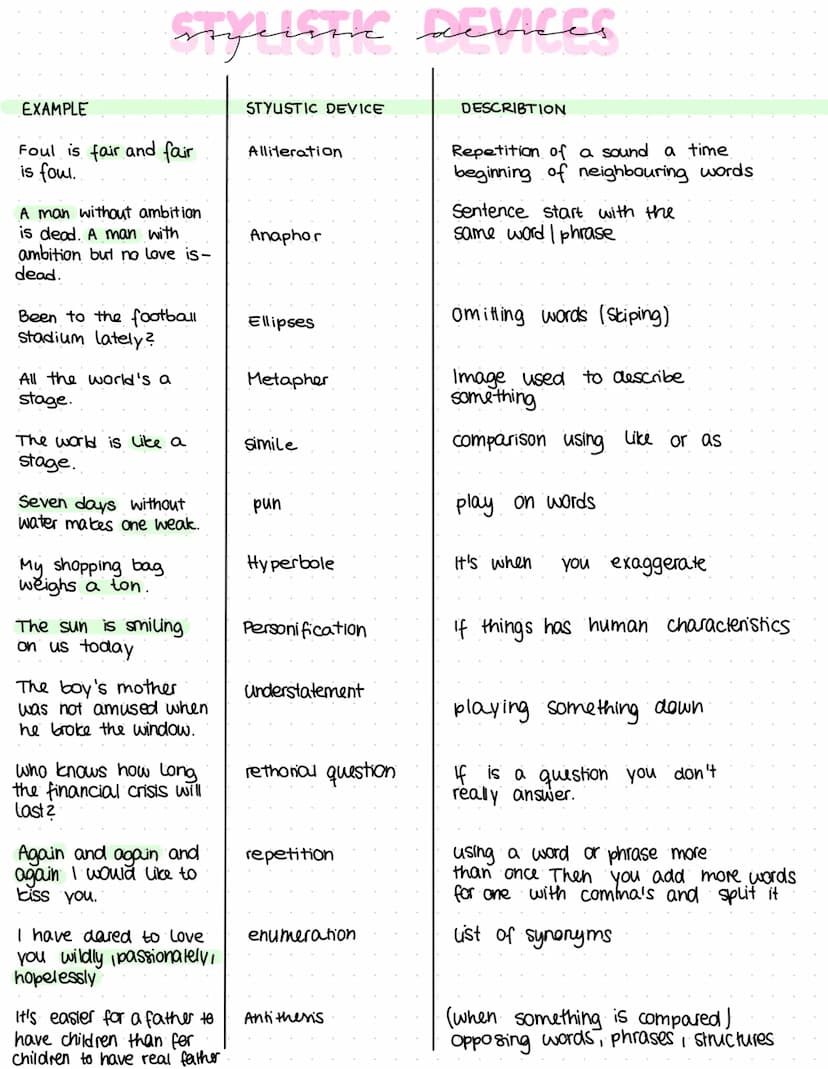 STYLISTIC DEVICES
stylistic devices
EXAMPLE
STYLISTIC DEVICE
DESCRIBTION
Foul is fair and fair
is foul.
Alliteration
Repetition of a sound a time
beginning of neighbouring words
A man without ambition
is dead. A man with
ambition but no love is-
dead.
Anaphor
Sentence start with the
same word/phrase
Been to the football
stadium lately?
Ellipses
Omitting words (skiping)
All the world's a
stage.
Metapher
Image used to describe
something
The world is like a
stage.
simile
comparison using like or as
Seven days without
water makes one weak.
pun
play on words
My shopping bag
weighs a ton.
Hyperbole
It's when you exaggerate
The sun is smiling
on us today
Personification
If things has human characteristics
The boy's mother
was not amused when
he broke the window.
understatement
playing something down
Who knows how long
the financial crisis will
last?
rethorial question
If is a question you don't
really answer.
Again and again and
again I would like to
kiss you.
repetition
using a word or phrase more
than once Then you add more words
for one with comma's and split it
I have dared to love
you wildly, passionately,
hopelessly
enumeration
List of synonyms
It's easier for a father to
have children than for
children to have real father
Antithesis
(when something is compared)
opposing words, phrases, structures